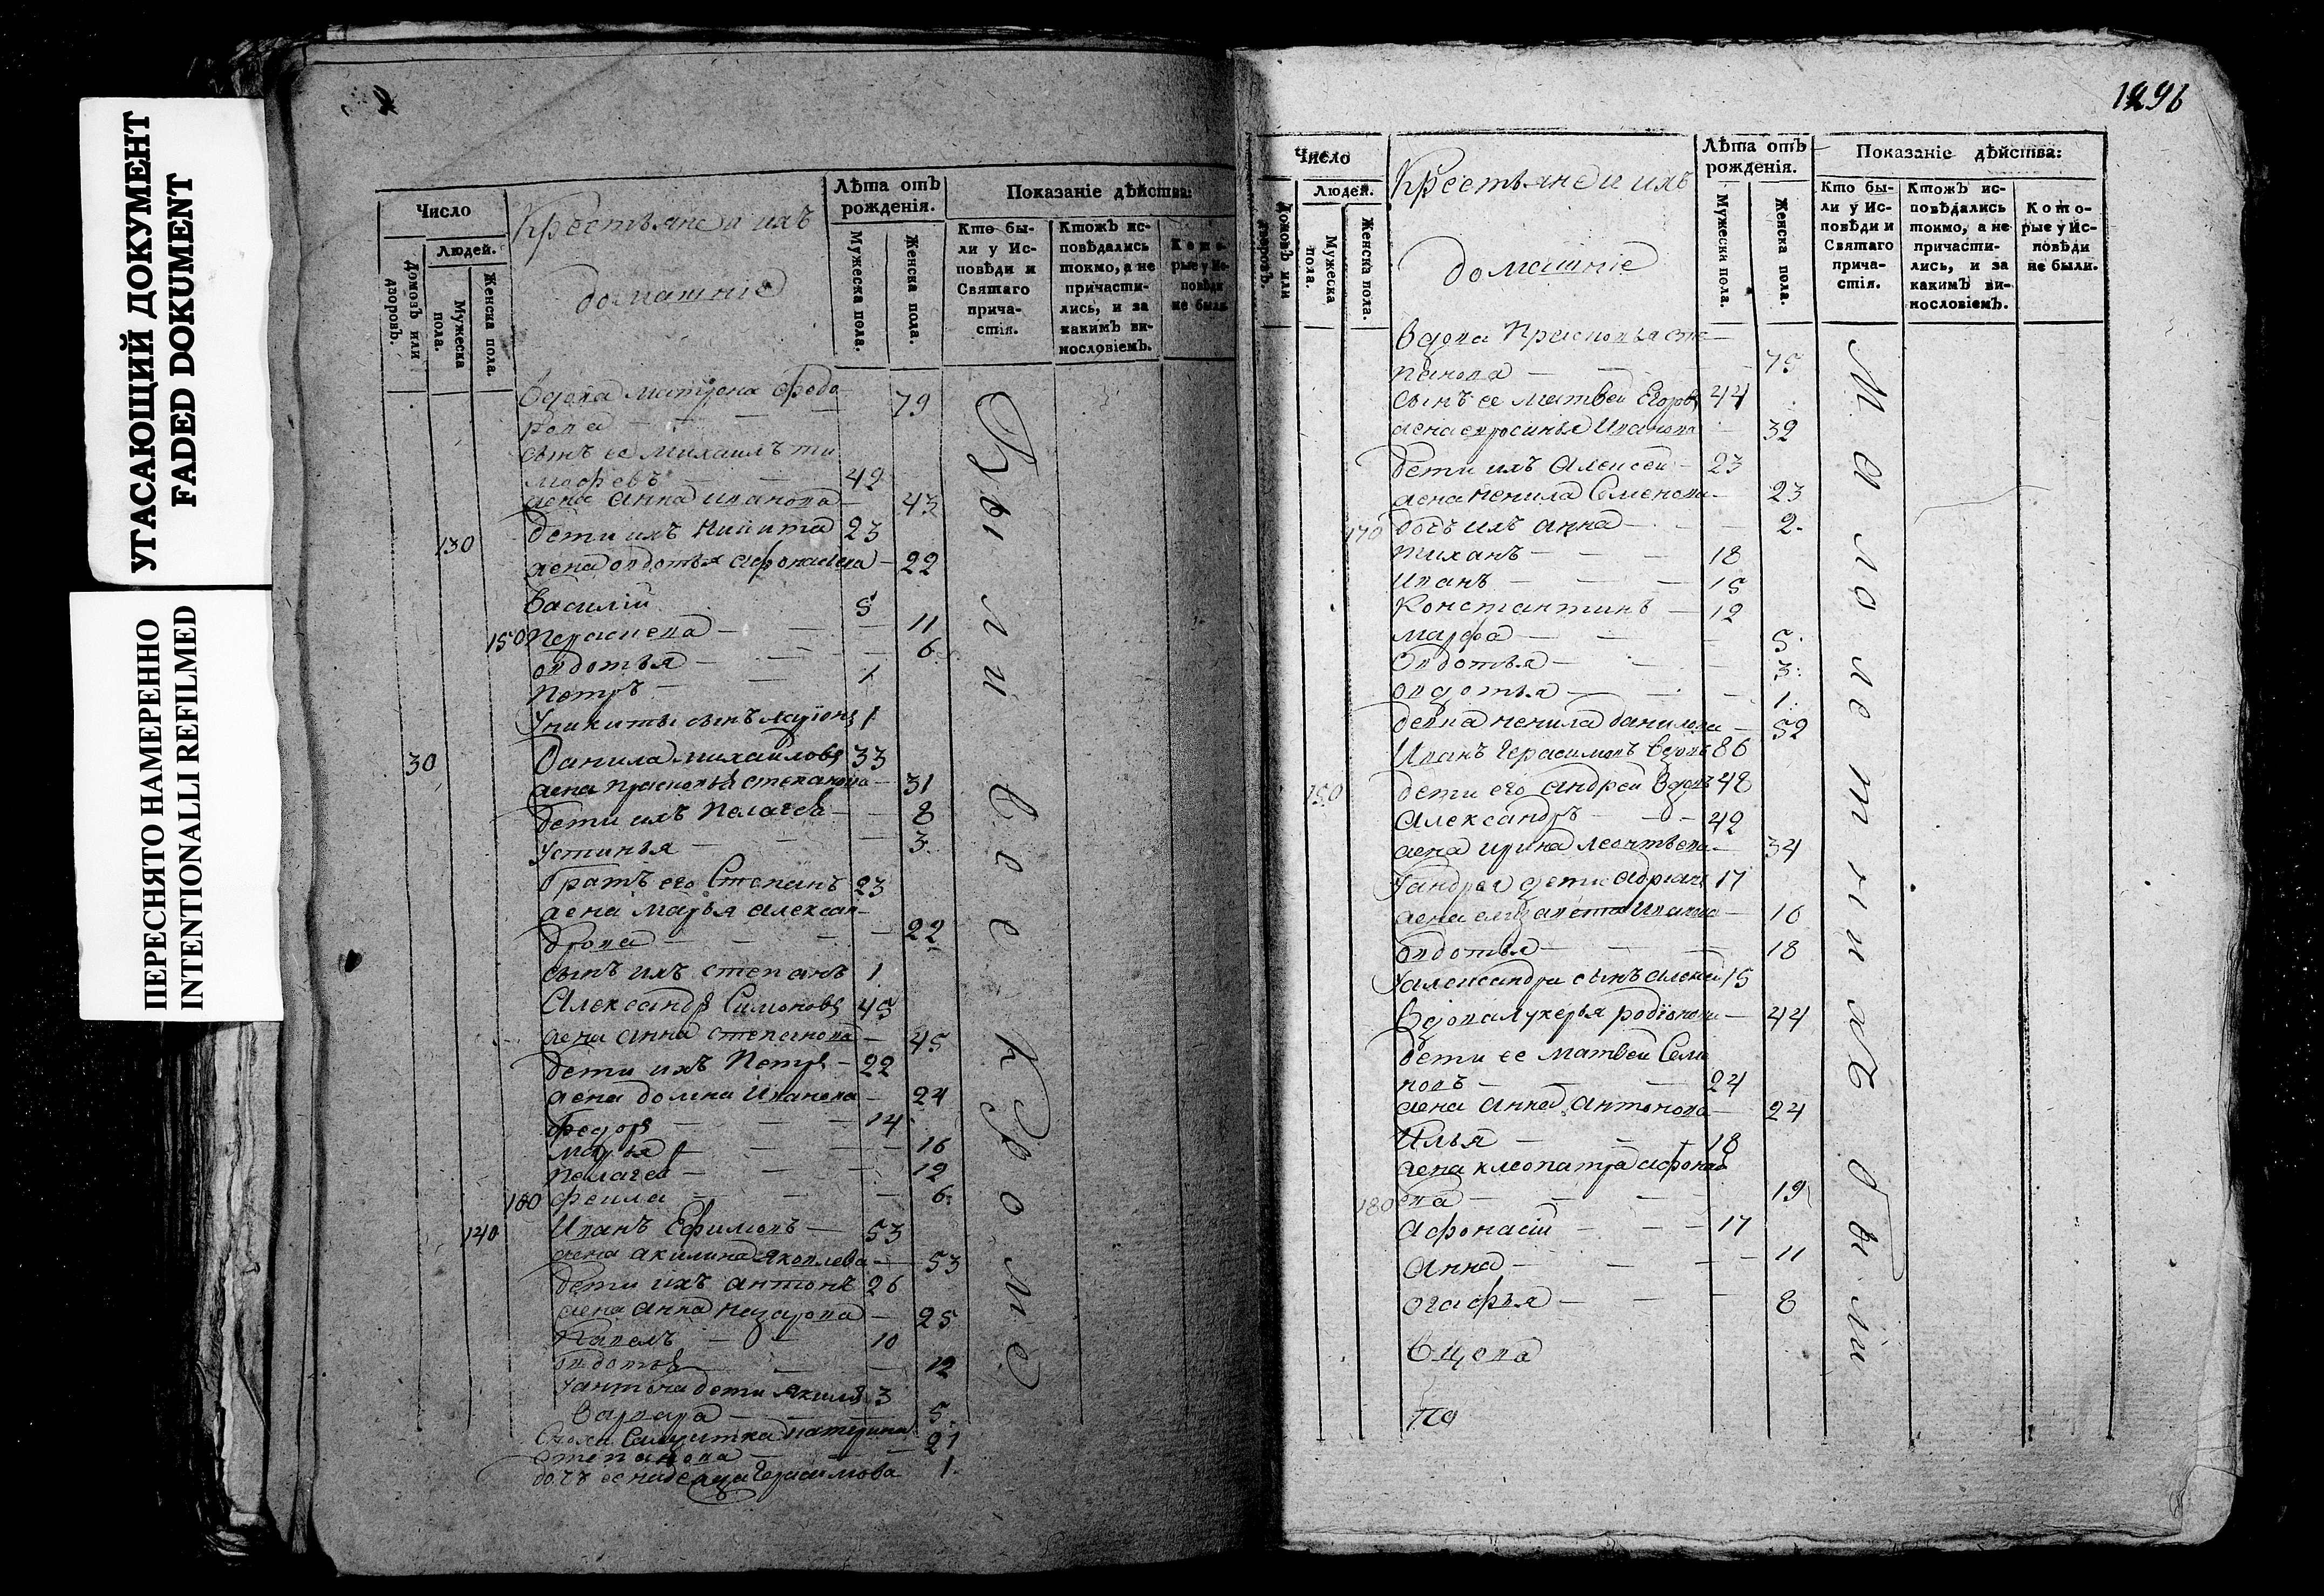 УГАСАЮЩИЙ ДОКУМЕНТ
FADED DOKUMENT
ПЕРЕСНЯТО НАМЕРЕННО
INTENTIONALLI REFILMED
Число
Людей.
Домовъ или дворовъ.
Мужеска пола.
Женска пола.
Крестьяне и ихъ
домашніе
Лѣта отъ рожденія.
Мужеска пола.
Женска пола.
Показаніе дѣйства:
Кто бы-
ли у Ис-
повѣди и
Святаго
прича-
стія.
Ктожъ ис-
повѣдались
токмо, а не
причасти-
лись, и за
какимъ ви-
нословіемъ.
Кото-
рые у Ис-
повѣди
не были.
вдова матрена Федо
рова — 79
сынъ ее михаилъ ти
мофевъ — 42
жена анна иванова — 43
130 дети ихъ никита 23
жена овдотья афонасева — 22
василій 5
150 Пераскева — 11
овдотья — 6
Петръ — 1
У никиты сынъ 1
30 Данила михаиловъ 33
жена прасковья степанова — 31
дети ихъ Пелагея — 8
устинья — 3
братъ его Степанъ 23
жена марья алексан-
дрова — 22
сынъ ихъ степанъ 1
Александръ Симоновъ 45
жена анна степанова — 45
дети ихъ Петръ — 22
жена домна Иванова — 24
Федоръ — 14
марья — 16
пелагея — 12
160 феkла — 6
140 Иванъ Ефимовъ — 53
жена акилина яковлева — 53
дети ихъ антонъ 26
жена анна назарова — 25
Павелъ — 10
овдотья — 12
У антона дети 3
варвара — 5
Сноха Салдатка катерина
Степанова — 21
дочъ ее надежда Герасимова 1
Были все кроме
1296
Число
Людей.
Домовъ или дворовъ.
Мужеска пола.
Женска пола.
Крестьяне и ихъ
домашніе
Лѣта отъ рожденія.
Мужеска пола.
Женска пола.
Показаніе дѣйства:
Кто бы-
ли у Ис-
повѣди и
Святаго
прича-
стія.
Ктожъ ис-
повѣдались
токмо, а не
причасти-
лись, и за
какимъ ви-
нословіемъ.
Кото-
рые у Ис-
повѣди
не были.
вдова Прасковья сте
панова — 75
сынъ ее матвей Егоровъ 44
жена ефросинья Иванова 39
дети ихъ Алексей — 23
жена ненила Семенова — 23
170 дочъ ихъ анна — 2
тиханъ — 18
Иванъ — 15
Константинъ — 12
марфа — 5
Овдотья — 3
овдотья — 1
девка ненила данилова — 52
Иванъ Герасимовъ вдовъ 86
150 дети его андрей вдовъ 48
Александръ — 42
жена ирина леонтьева — 34
У андрея дети 17
жена елизавета Иванова — 16
овдотья — 18
У александра сынъ алексей 15
вдова лукерья родіонова — 44
дети ее матвей Семе
новъ — 24
жена анна антонова — 24
Илья — 18
жена клеопатра афонас
180 ева — 19
афонасій — 17
анна — 11
огафья — 8
вдова
Па
Малолетних были